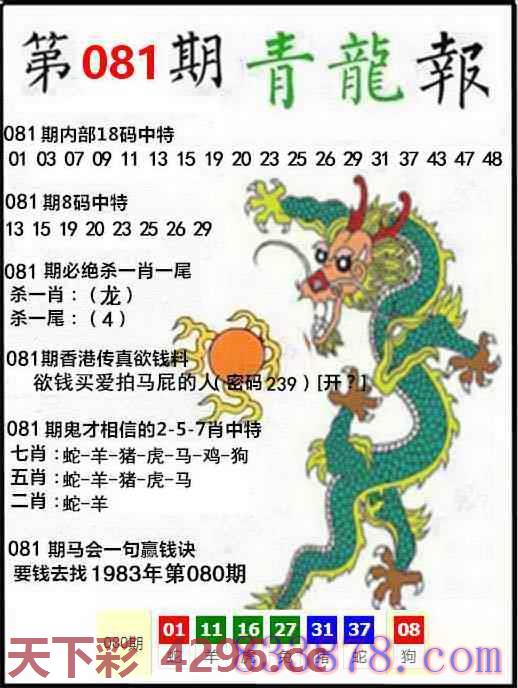 第081期青龍報
081期内部18码中特
01 03 07 09 11 13 15 19 20 23 25 26 29 31 37 43 47 48
081期8码中特
13 15 19 20 23 25 26 29
081期必绝杀一肖一尾
杀一肖：(龙)
杀一尾：(4)
081期香港传真欲钱料
欲钱买爱拍马屁的人(密码239)[开?]
081期鬼才相信的2-5-7肖中特
七肖：蛇-羊-猪-虎-马-鸡-狗
五肖：蛇-羊-猪-虎-马
二肖：蛇-羊
081期马会一句赢钱诀
要钱去找1983年第080期
080期 01 11 16 27 31 37 08
蛇 羊 虎 兔 猪 蛇 狗
天下彩 4296.cc